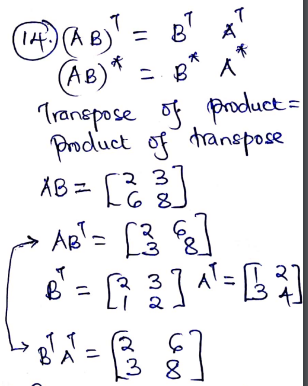 14. (AB)ᵀ = Bᵀ Aᵀ
(AB)* = B* A*
Transpose of product =
product of transpose
AB = [2 3
6 8]
→ ABᵀ = [2 6
3 8]
Bᵀ = [2 3
1 2] Aᵀ = [1 2
3 4]
→ BᵀAᵀ = [2 6
3 8]